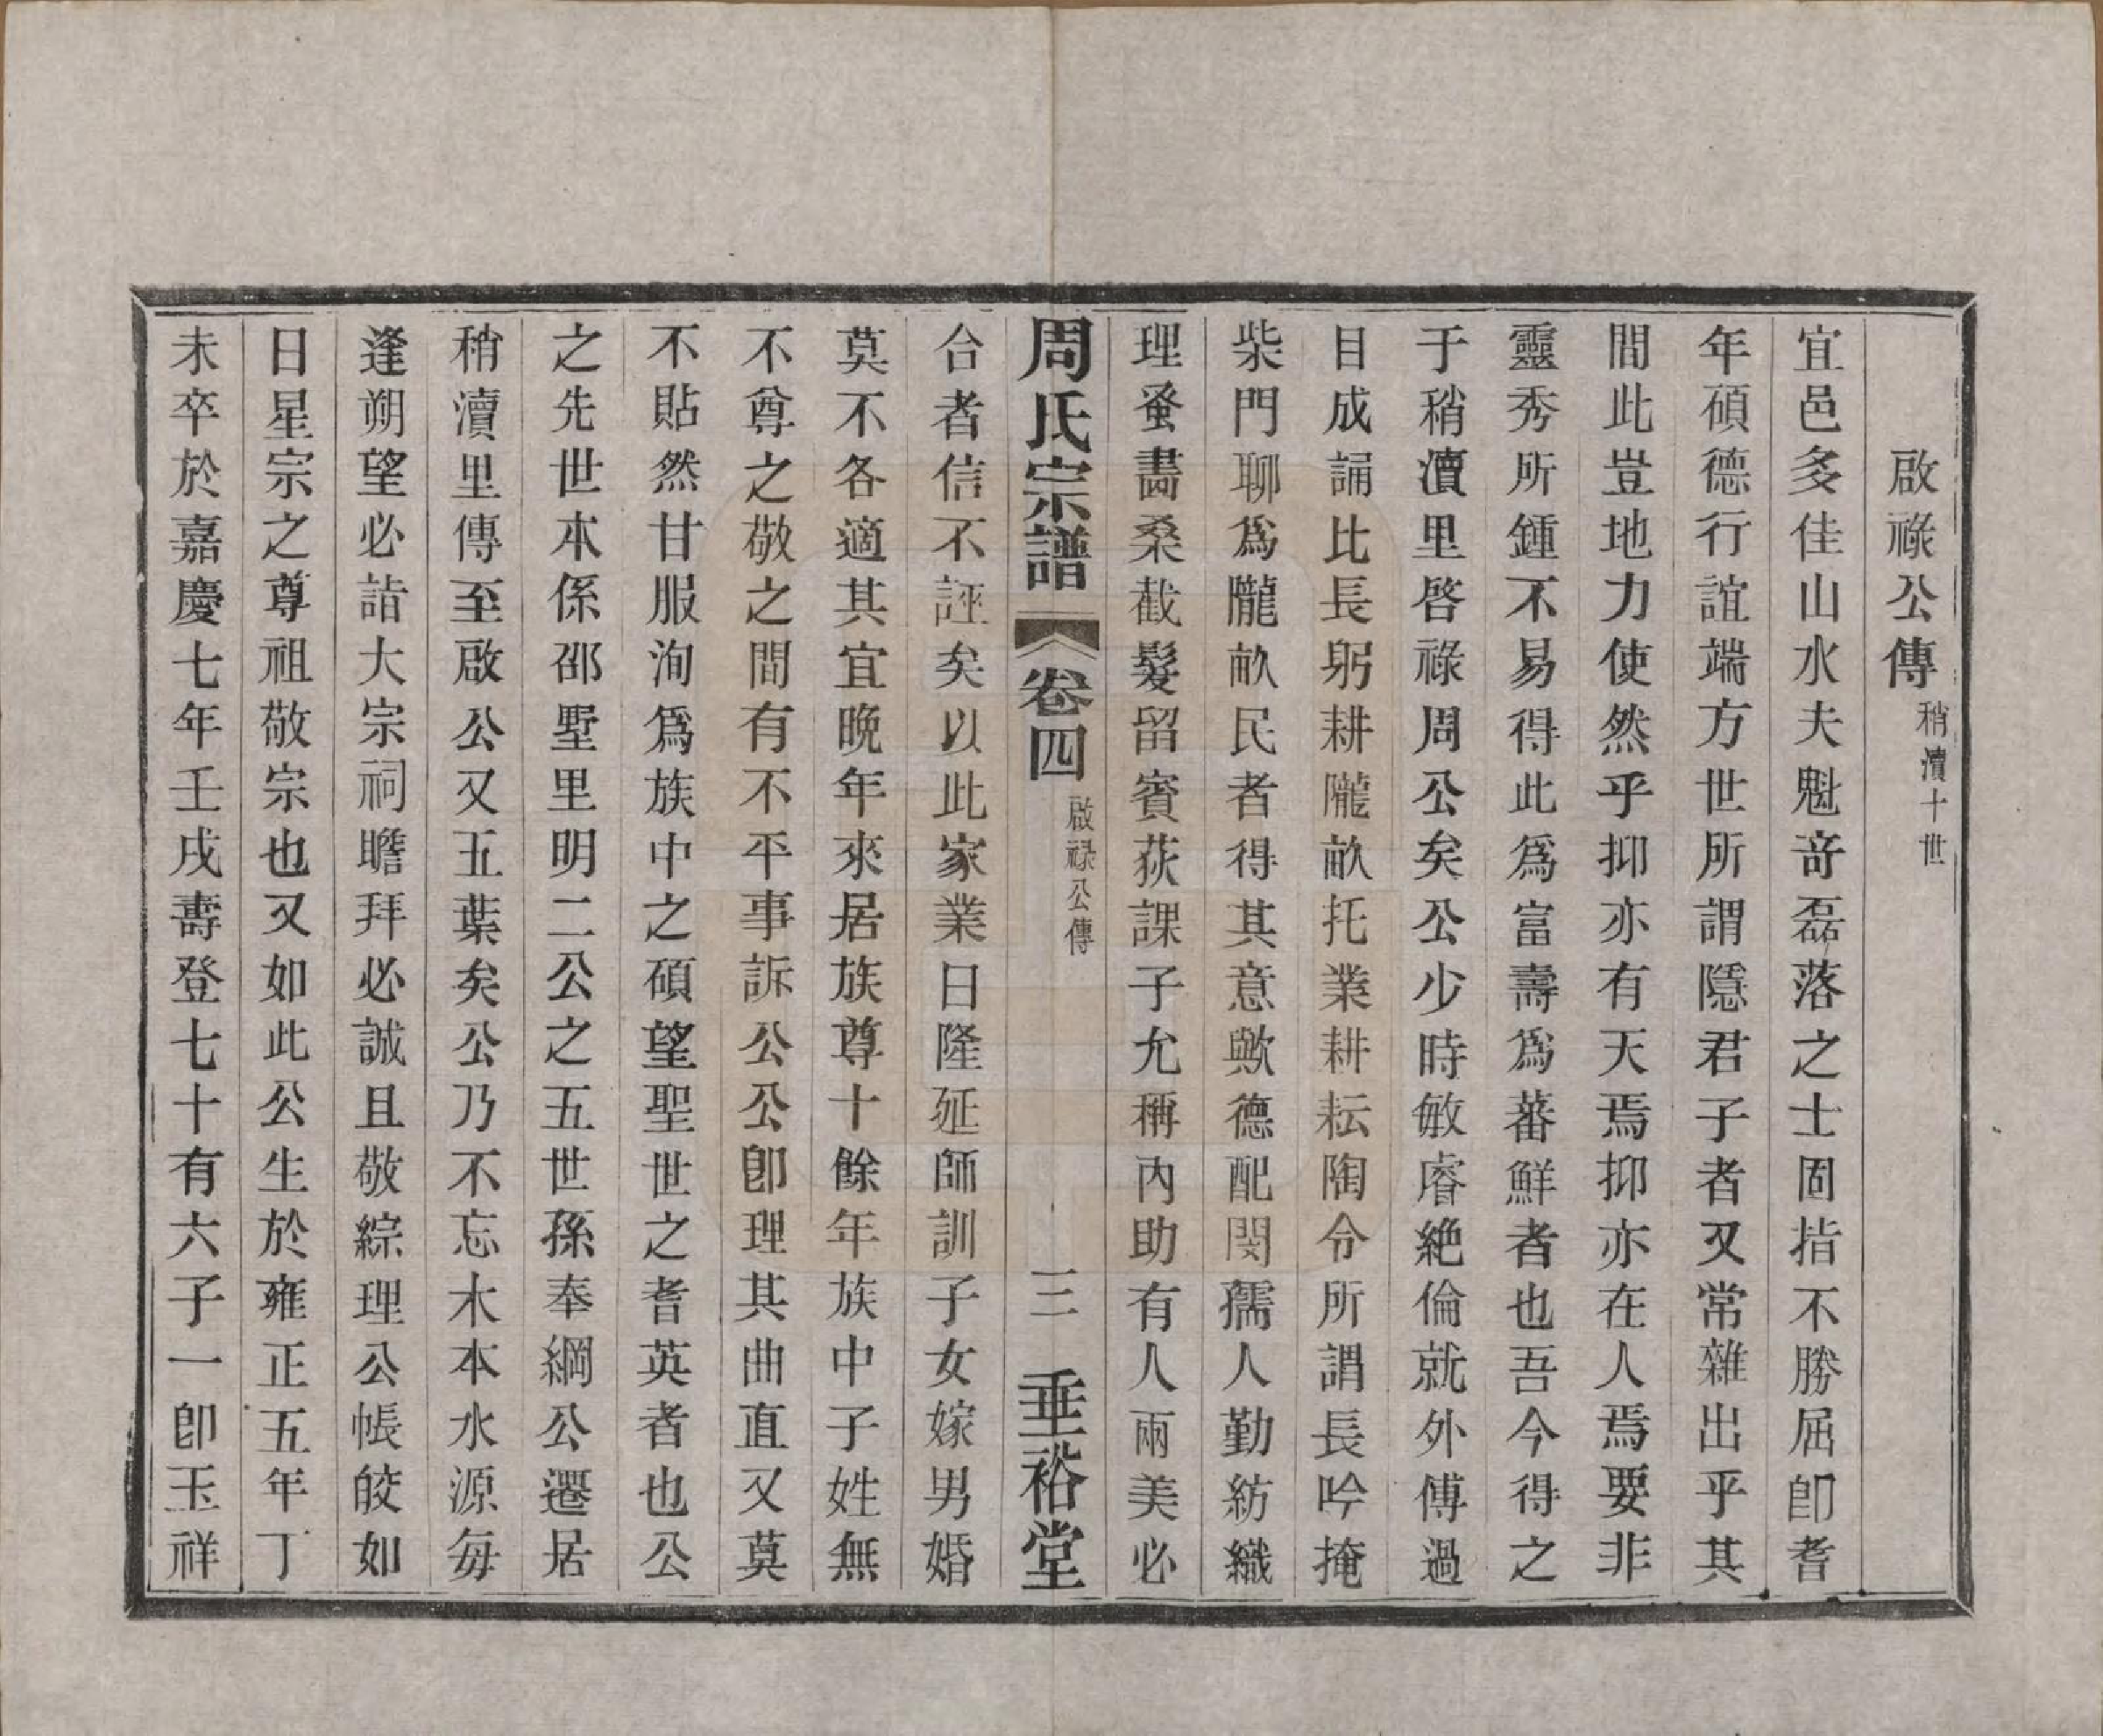 啟祿公傳 稍瀆十世
宜邑多佳山水夫魁竒磊落之士固指不勝屈卽耆
年碩德行誼端方世所謂隱君子者又常雜出乎其
間此豈地力使然乎抑亦有天焉抑亦在人焉要非
靈秀所鍾不易得此爲富壽爲蕃鮮者也吾今得之
于稍瀆里啓祿周公矣公少時敏睿絕倫就外傅過
目成誦比長躬耕隴畝托業耕耘陶令所謂長吟掩
柴門聊爲隴畝民者得其意歟德配閔孺人勤紡織
理蚤晝桑截髮留賓荻課子允稱內助有人兩美必
周氏宗譜 卷四 啟祿公傳 三 垂裕堂
合者信不誣矣以此家業日隆延師訓子女嫁男婚
莫不各適其宜晚年來居族尊十餘年族中子姓無
不尊之敬之間有不平事訴公公卽理其曲直又莫
不貼然甘服洵爲族中之碩望聖世之耆英者也公
之先世本係邵墅里明二公之五世孫奉綱公遷居
稍瀆里傳至啟公又五葉矣公乃不忘木本水源每
逢朔望必詣大宗祠瞻拜必誠且敬綜理公帳皎如
日星宗之尊祖敬宗也又如此公生於雍正五年丁
未卒於嘉慶七年壬戌壽登七十有六子一卽玉祥